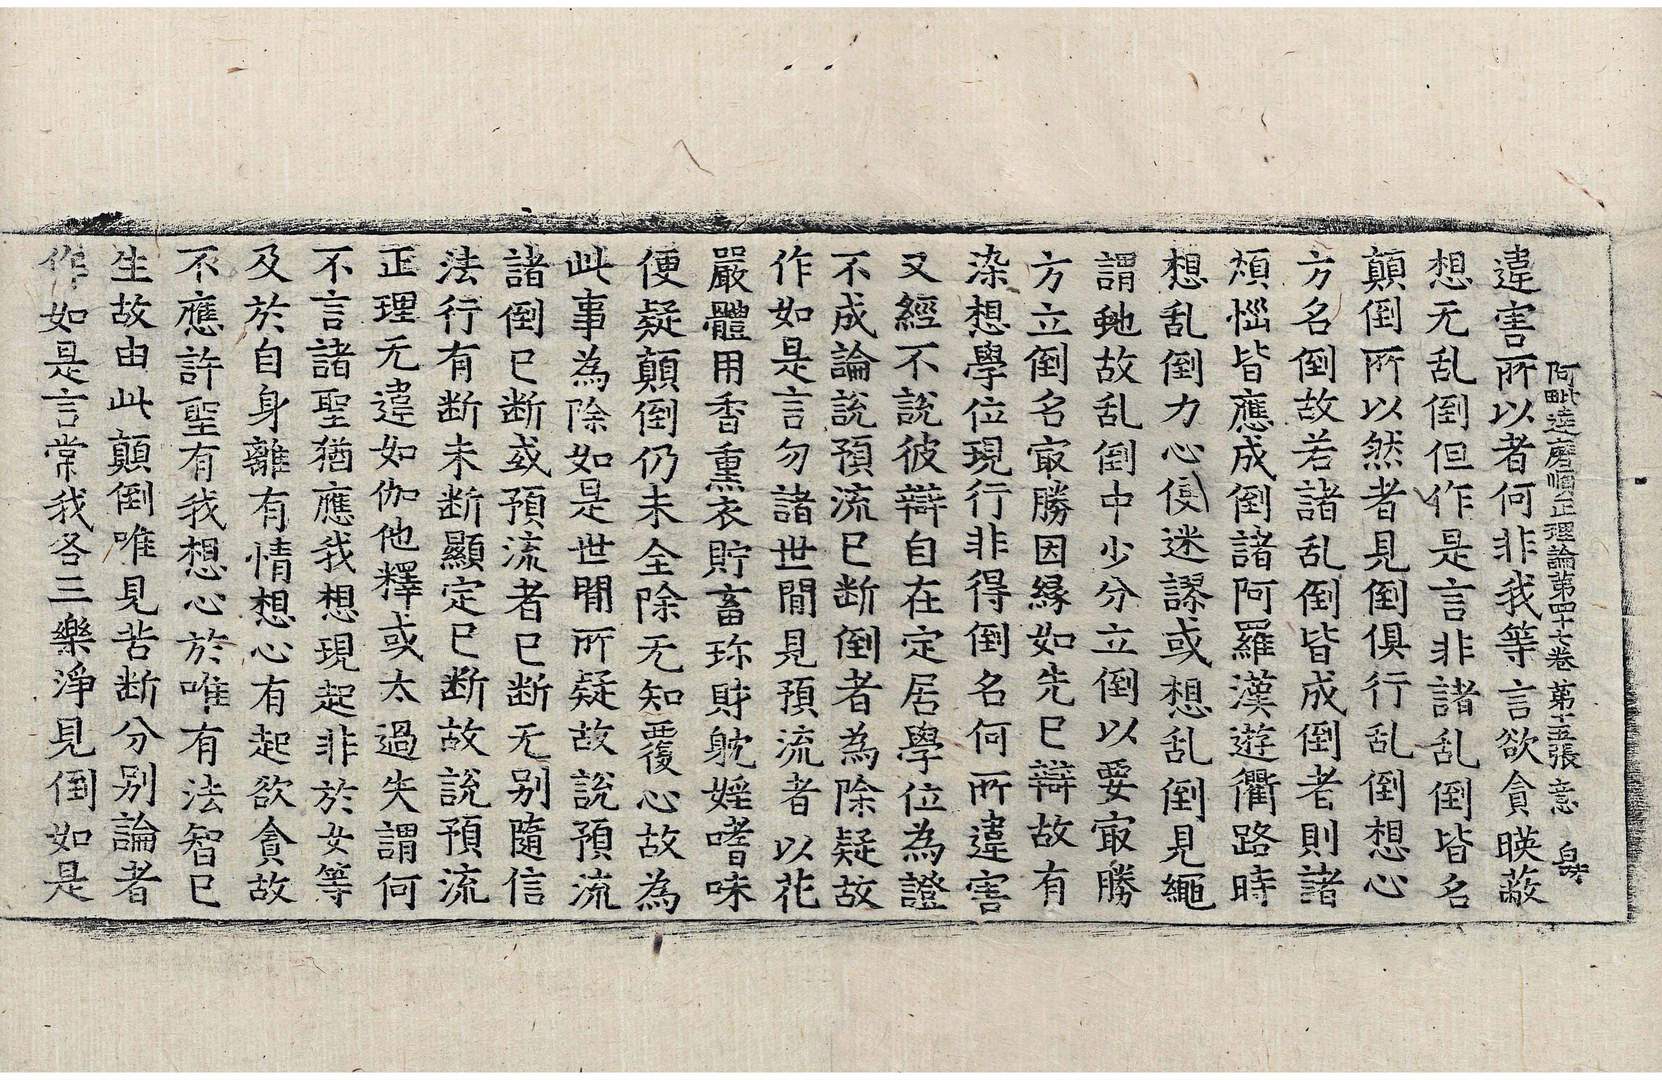 阿毗達磨順正理論第四十七卷 第十五張 意
違害所以者何非我等言欲貪暎蔽
想无乱倒但作是言非諸乱倒皆名
顛倒所以然者見倒俱行乱倒想心
方名倒故若諸乱倒皆成倒者則諸
煩惱皆應成倒諸阿羅漢遊衢路時
想乱倒力心便迷謬或想乱倒見繩
謂虵故乱倒中少分立倒以要㝡勝
方立倒名㝡勝因縁如先已辯故有
染想學位現行非得倒名何所違害
又經不說彼辯自在定居學位為證
不成論說預流已断倒者為除疑故
作如是言勿諸世間見預流者以花
嚴體用香熏衣貯畜珎財躭婬嗜味
便疑顛倒仍未全除无知覆心故為
此事為除如是世間所疑故說預流
諸倒已断或預流者已断无别隨信
法行有断未断顯定已断故說預流
正理无違如伽他釋或太過失謂何
不言諸聖猶應我想現起非於女等
及於自身離有情想心有起欲貪故
不應許聖有我想心於唯有法智已
生故由此顛倒唯見苦断分别論者
作如是言常我各三樂淨見倒如是